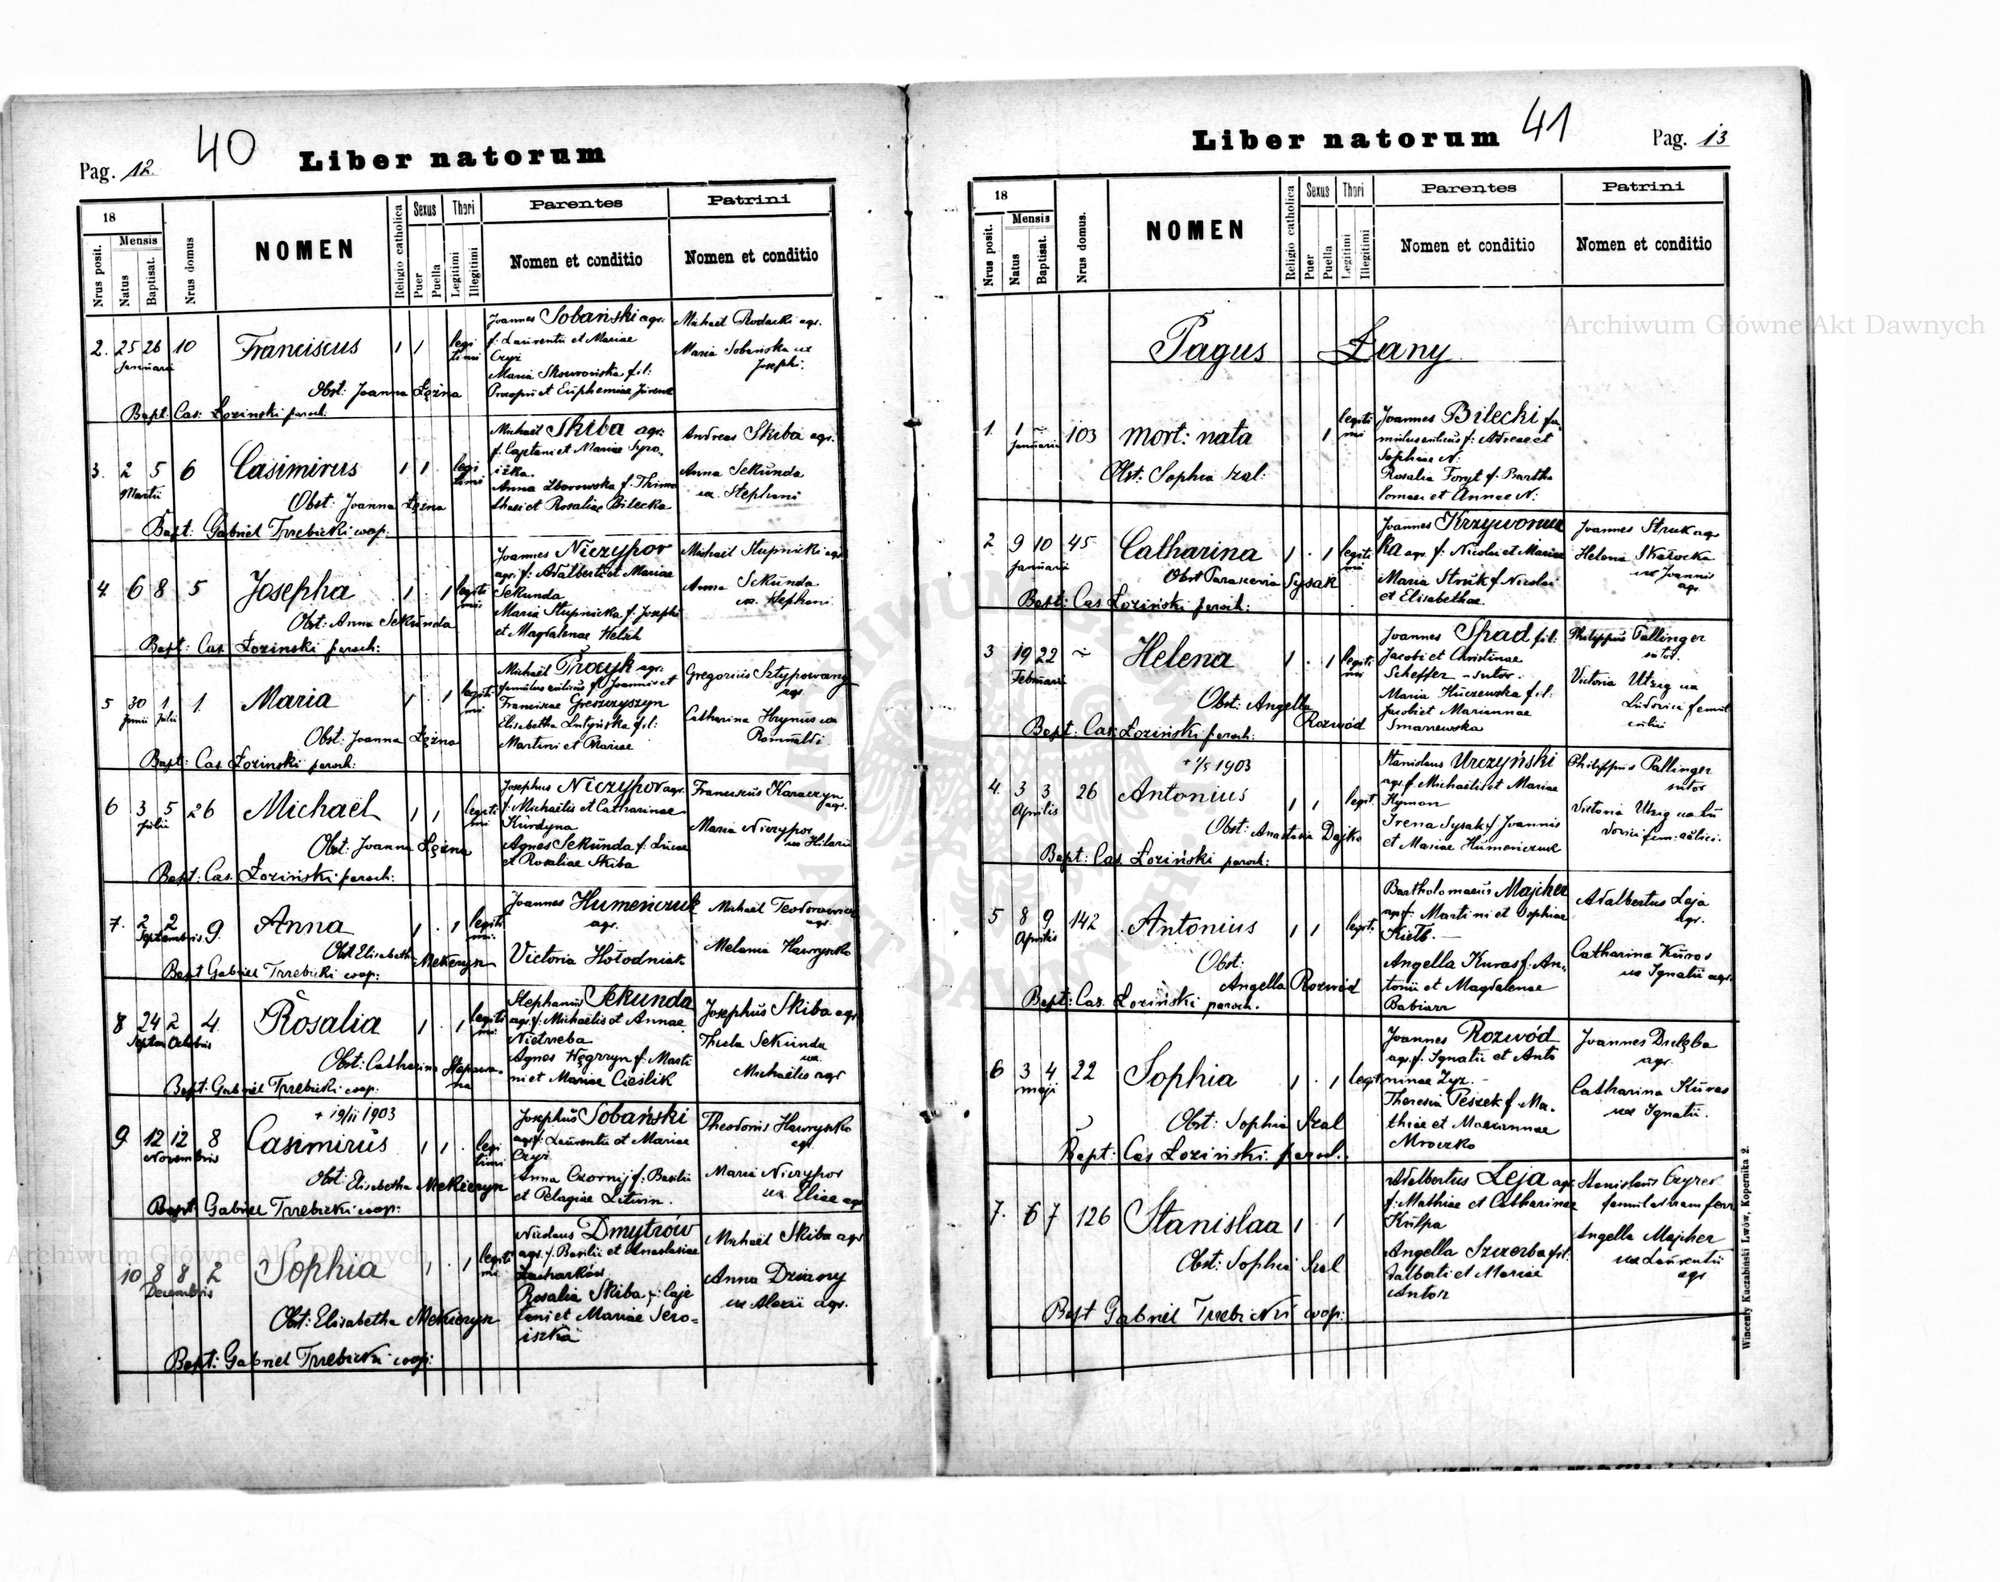 40
Pag. 12.
Liber natorum
18
Nrus posit.
Mensis
Natus
Baptisat.
Nrus domus
NOMEN
Religio catholica
Sexus
Puer
Puella
Thori
Legitimi
Illegitimi
Parentes
Nomen et conditio
Patrini
Nomen et conditio
2. 25 26 10 Franciscus 1 1 legi
Januarii timi
Joannes Sobański agr.
f. Laurentii et Mariae
Czyż
Maria Skowrońska fil:
Prokopii et Euphemiae
Michaël Rodacki agr.
Maria Sobańska ux
Josephi.
Obst: Joanna Łężna
Bapt: Cas: Łoziński paroch:
3. 2 5 6 Casimirus 1 1 legi
Martii timi
Michaël Skiba agr:
f. Cajetani et Mariae
Anna Zborowska f. Thimo
thaei et Rosaliae Bilecka
Andreas Skiba agr.
Anna Sekunda
ux. Stephani
Obst: Joanna Łężna
Bapt: Gabriel Trzebicki coop.
4. 6 8 5 Josepha 1 . 1 legiti
mi
Joannes Niczypor
agr. f: Adalberti et Mariae
Sekunda
Maria Stupnicka f. Josephi
et Magdalenae Helsch
Michaël Stupnicki agr.
Anna Sekunda
ux. Stephani
Obst: Anna Sekunda
Bapt: Cas. Łoziński paroch:
5 30 1 1. Maria 1 . 1 legiti
Junii Julii mi
Michaël Trocyk agr:
famulus aulicus f. Joannis et
Franciscae Greszczyszyn
Elisabetha Lutyńska fil:
Martini et Mariae
Gregorius Sztypowany
agr.
Catharina Hrynus ux
Romualdi
Obst: Joanna Łężna
Bapt: Cas. Łoziński paroch:
6 3 5 26 Michaël 1 1 legiti
Julii mi
Josephus Niczypor agr.
f. Michaëlis et Catharinae
Kurdyna
Agnes Sekunda f. Lucae
et Rosaliae Skiba
Franciscus Karaczyn
agr.
Maria Niczypor
ux Hilarii
Obst: Joanna Łężna
Bapt: Cas. Łoziński paroch:
7. 2 2 9. Anna 1 . 1 legiti
Septembris mi
Joannes Humeńczuk
agr.
Victoria Hołodniak
Michaël Teodorowicz
agr.
Melania Hawryszko
Obst Elisabeth Mekieryn
Bapt Gabriel Trzebicki coop:
8 24 2 4. Rosalia 1 . 1 legiti
Septem Octobris mi
Stephanus Sekunda
agr. f: Michaëlis et Annae
Nietrzeba
Agnes Węgrzyn f. Marti
ni et Mariae Cieślik
Josephus Skiba agr.
Thecla Sekunda
ux.
Michaëlis agr
Obst: Catharina
Bapt: Gabriel Trzebicki coop.
+ 19/II 1903
9. 12 12 8 Casimirus 1 1 . legi
Novembris timi
Josephus Sobański
agr f: Laurentii et Mariae
Czyż
Anna Czornij f. Basilii
et Pelagiae Litwin.
Theodorus Hawryszko
agr
Maria Niczypor
ux. Eliae agr
Obst: Elisabetha Mekieryn
Bapt: Gabriel Trzebicki coop:
10 8 8 2 Sophia 1 . 1 legiti
Decembris mi
Nicolaus Dmytrów
agr. f. Basilii et Anastasiae
Zacharków
Rosalia Skiba f: Caje
tani et Mariae Sero=
iszka
Michaël Skiba agr
Anna Dziany
ux Alexii agr.
Obst: Elisabetha Mekieryn
Bapt: Gabriel Trzebicki coop:
Liber natorum
41
Pag. 13
18
Nrus posit.
Mensis
Natus
Baptisat.
Nrus domus.
NOMEN
Religio catholica
Sexus
Puer
Puella
Thori
Legitimi
Illegitimi
Parentes
Nomen et conditio
Patrini
Nomen et conditio
Pagus Łany
1. 1 ~ 103 mort: nata 1 legiti
Januarii mi
Joannes Bilecki fa-
mulus aulicus f: Andreae et
Sophiae N:
Rosalia Foryt f. Bartho
lomaei et Annae N:
Obst: Sophia Szal:
2 9 10 45 Catharina 1 . 1 legiti
Januarii mi
Joannes Krzywonus
ka agr. f. Nicolai et Mariae
Maria Struk f. Nicolai
et Elisabethae.
Joannes Struk agr
Helena Skałocka
ux Joannis
agr
Obst Paraxevia Sysak
Bapt: Cas Łoziński paroch:
3 19 22 ~ Helena 1 . 1 legiti
Februarii mi
Joannes Spad fil:
Jacobi et Christinae
Scheffer - sutor.
Maria Huczewska fil:
Jacobi et Mariannae
Smarzewska
Philippus Pallinger
sutor.
Victoria Utzig ux
Ludovici famul
aulici
Obst: Angella Rozwód
Bapt: Cas: Łoziński paroch:
+ 1/5 1903
4. 3 3 26 Antonius 1 1 legit.
Aprilis
Stanislaus Urczyński
agr. f. Michaëlis et Mariae
Hymon
Irena Sysak f Joannis
et Mariae Humeńczuk
Philippus Pallinger
sutor
Victoria Utzig ux Lu
dovici fam: aulici.
Obst: Anastasia Dajko
Bapt: Cas. Łoziński paroch:
5 8 9 142 Antonius 1 1 legit.
Aprilis
Bartholomaeus Majcher
agr. f: Martini et Sophiae
Kiełb. -
Angella Kuras f: An-
tonii et Magdalenae
Babiarz
Adalbertus Leja
agr.
Catharina Kuras
ux Ignatii agr.
Obst:
Angella Rozwód
Bapt: Cas. Łoziński paroch.
6 3 4 22 Sophia 1 . 1 legit
maji
Joannes Rozwód
agr. f. Ignatii et Anto
ninae Zyz. -
Theresia Peszek f. Ma-
thiae et Mariannae
Mroczko
Joannes Dziełba
agr.
Catharina Kuras
ux Ignatii.
Obst: Sophia Szal
Bapt: Cas Łoziński paroch.
7. 6 7 126 Stanislaa 1 . 1
Adalbertus Leja agr.
f: Mathiae et Catharinae
Kulpa
Angella Szczerba fil.
Adalberti et Mariae
Antoń
Stanislaus Czyrek
Angella Majcher
ux Laurentii
agr
Obst: Sophia Szal
Bapt Gabriel Trzebicki coop:
Wincenty Kuczabiński Lwów, Kopernika 2.
Archiwum Główne Akt Dawnych
Archiwum Główne Akt Dawnych